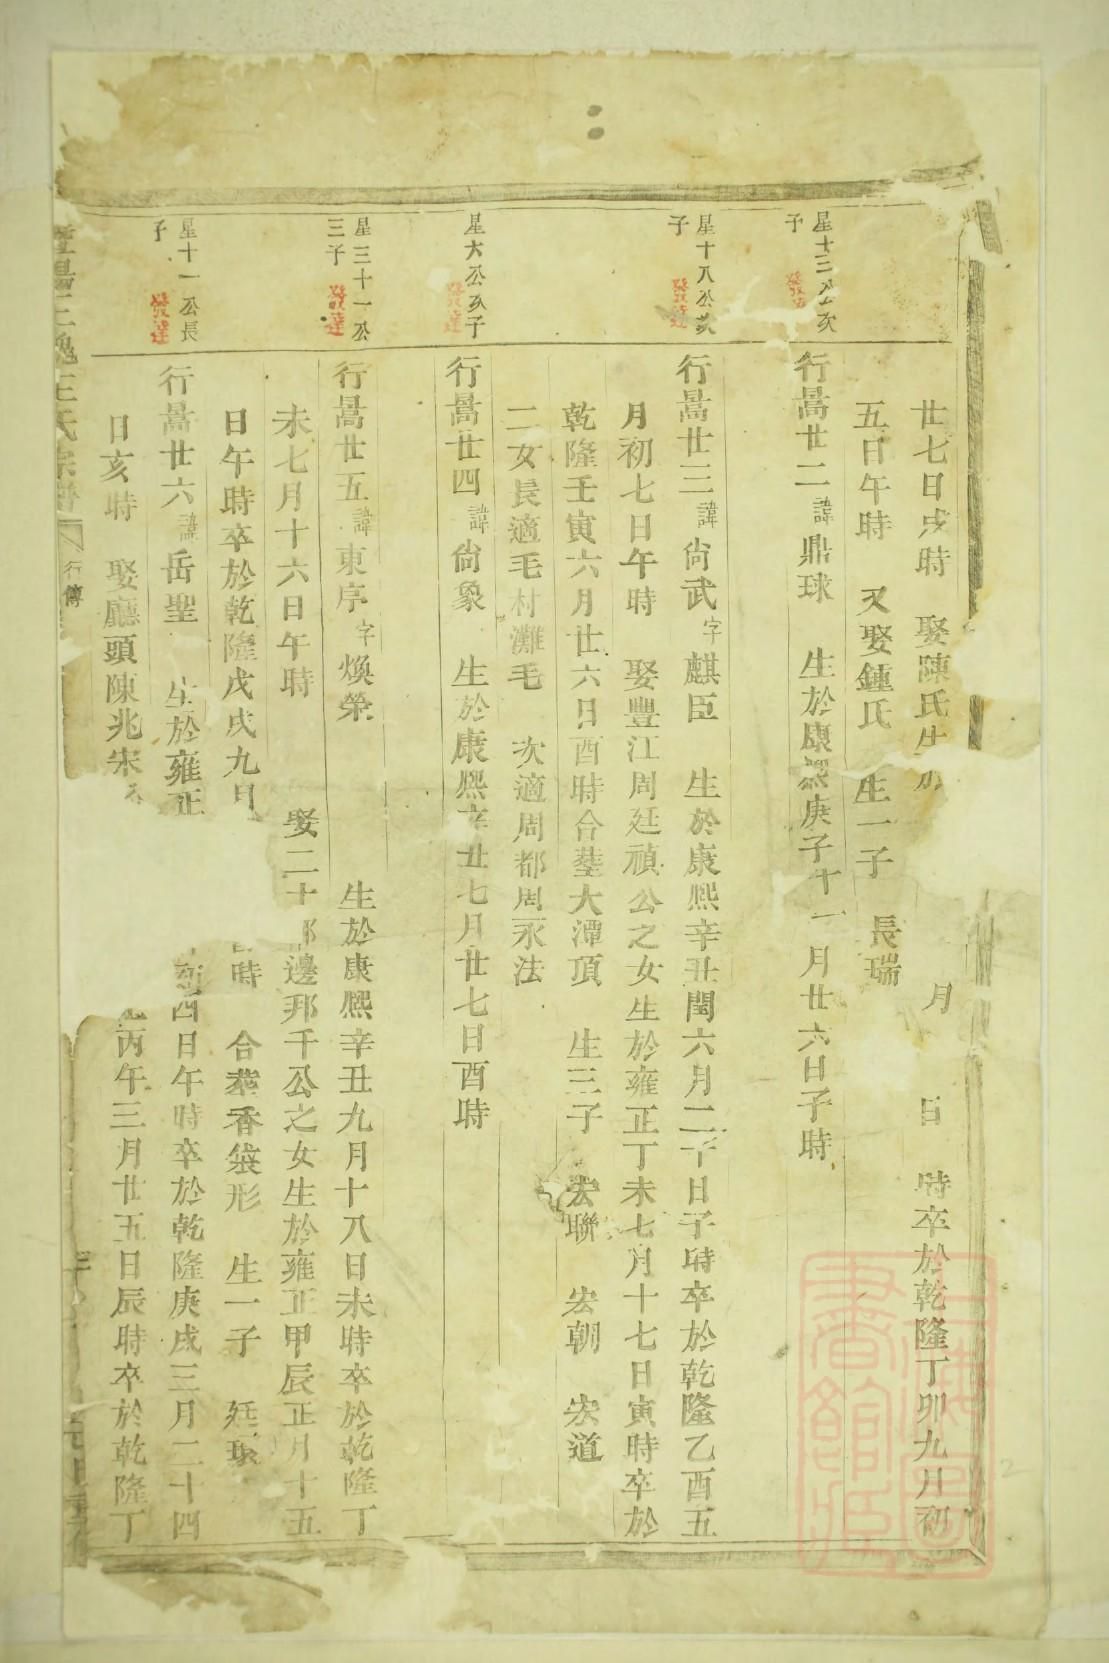 廿七日戌時　娶陳氏生於　月　日　時卒於乾隆丁卯九月初
五日午時　又娶鍾氏　生一子　長瑞
星十三公次子
行暠廿二諱鼎球　生於康熙庚子十一月廿六日子時
星十八公次子
發達
行暠廿三諱尙武字麒臣　生於康熙辛丑閏六月二十日子時卒於乾隆乙酉五
月初七日午時　娶豐江周廷禎公之女生於雍正丁未七月十七日寅時卒於
乾隆壬寅六月廿六日酉時合塟大潭頂　生三子　宏聯　宏朝　宏道
二女長適毛村灘毛　次適周都周永法
星六公次子
發達
行暠廿四諱尙象　生於康熙辛丑七月廿七日酉時
星三十一公
三子
發達
行暠廿五諱東序字煥榮　生於康熙辛丑九月十八日未時卒於乾隆丁
未七月十六日午時　娶二十都邊邦千公之女生於雍正甲辰正月十五
日午時卒於乾隆戊戌九月　時　合塟香袋形　生一子　廷
星十一公長
子
發達
行暠廿六諱岳聖　生於雍正　四日午時卒於乾隆庚戌三月二十四
日亥時　娶廳頭陳兆宋　丙午三月廿五日辰時卒於乾隆丁
王氏宗譜　行傳